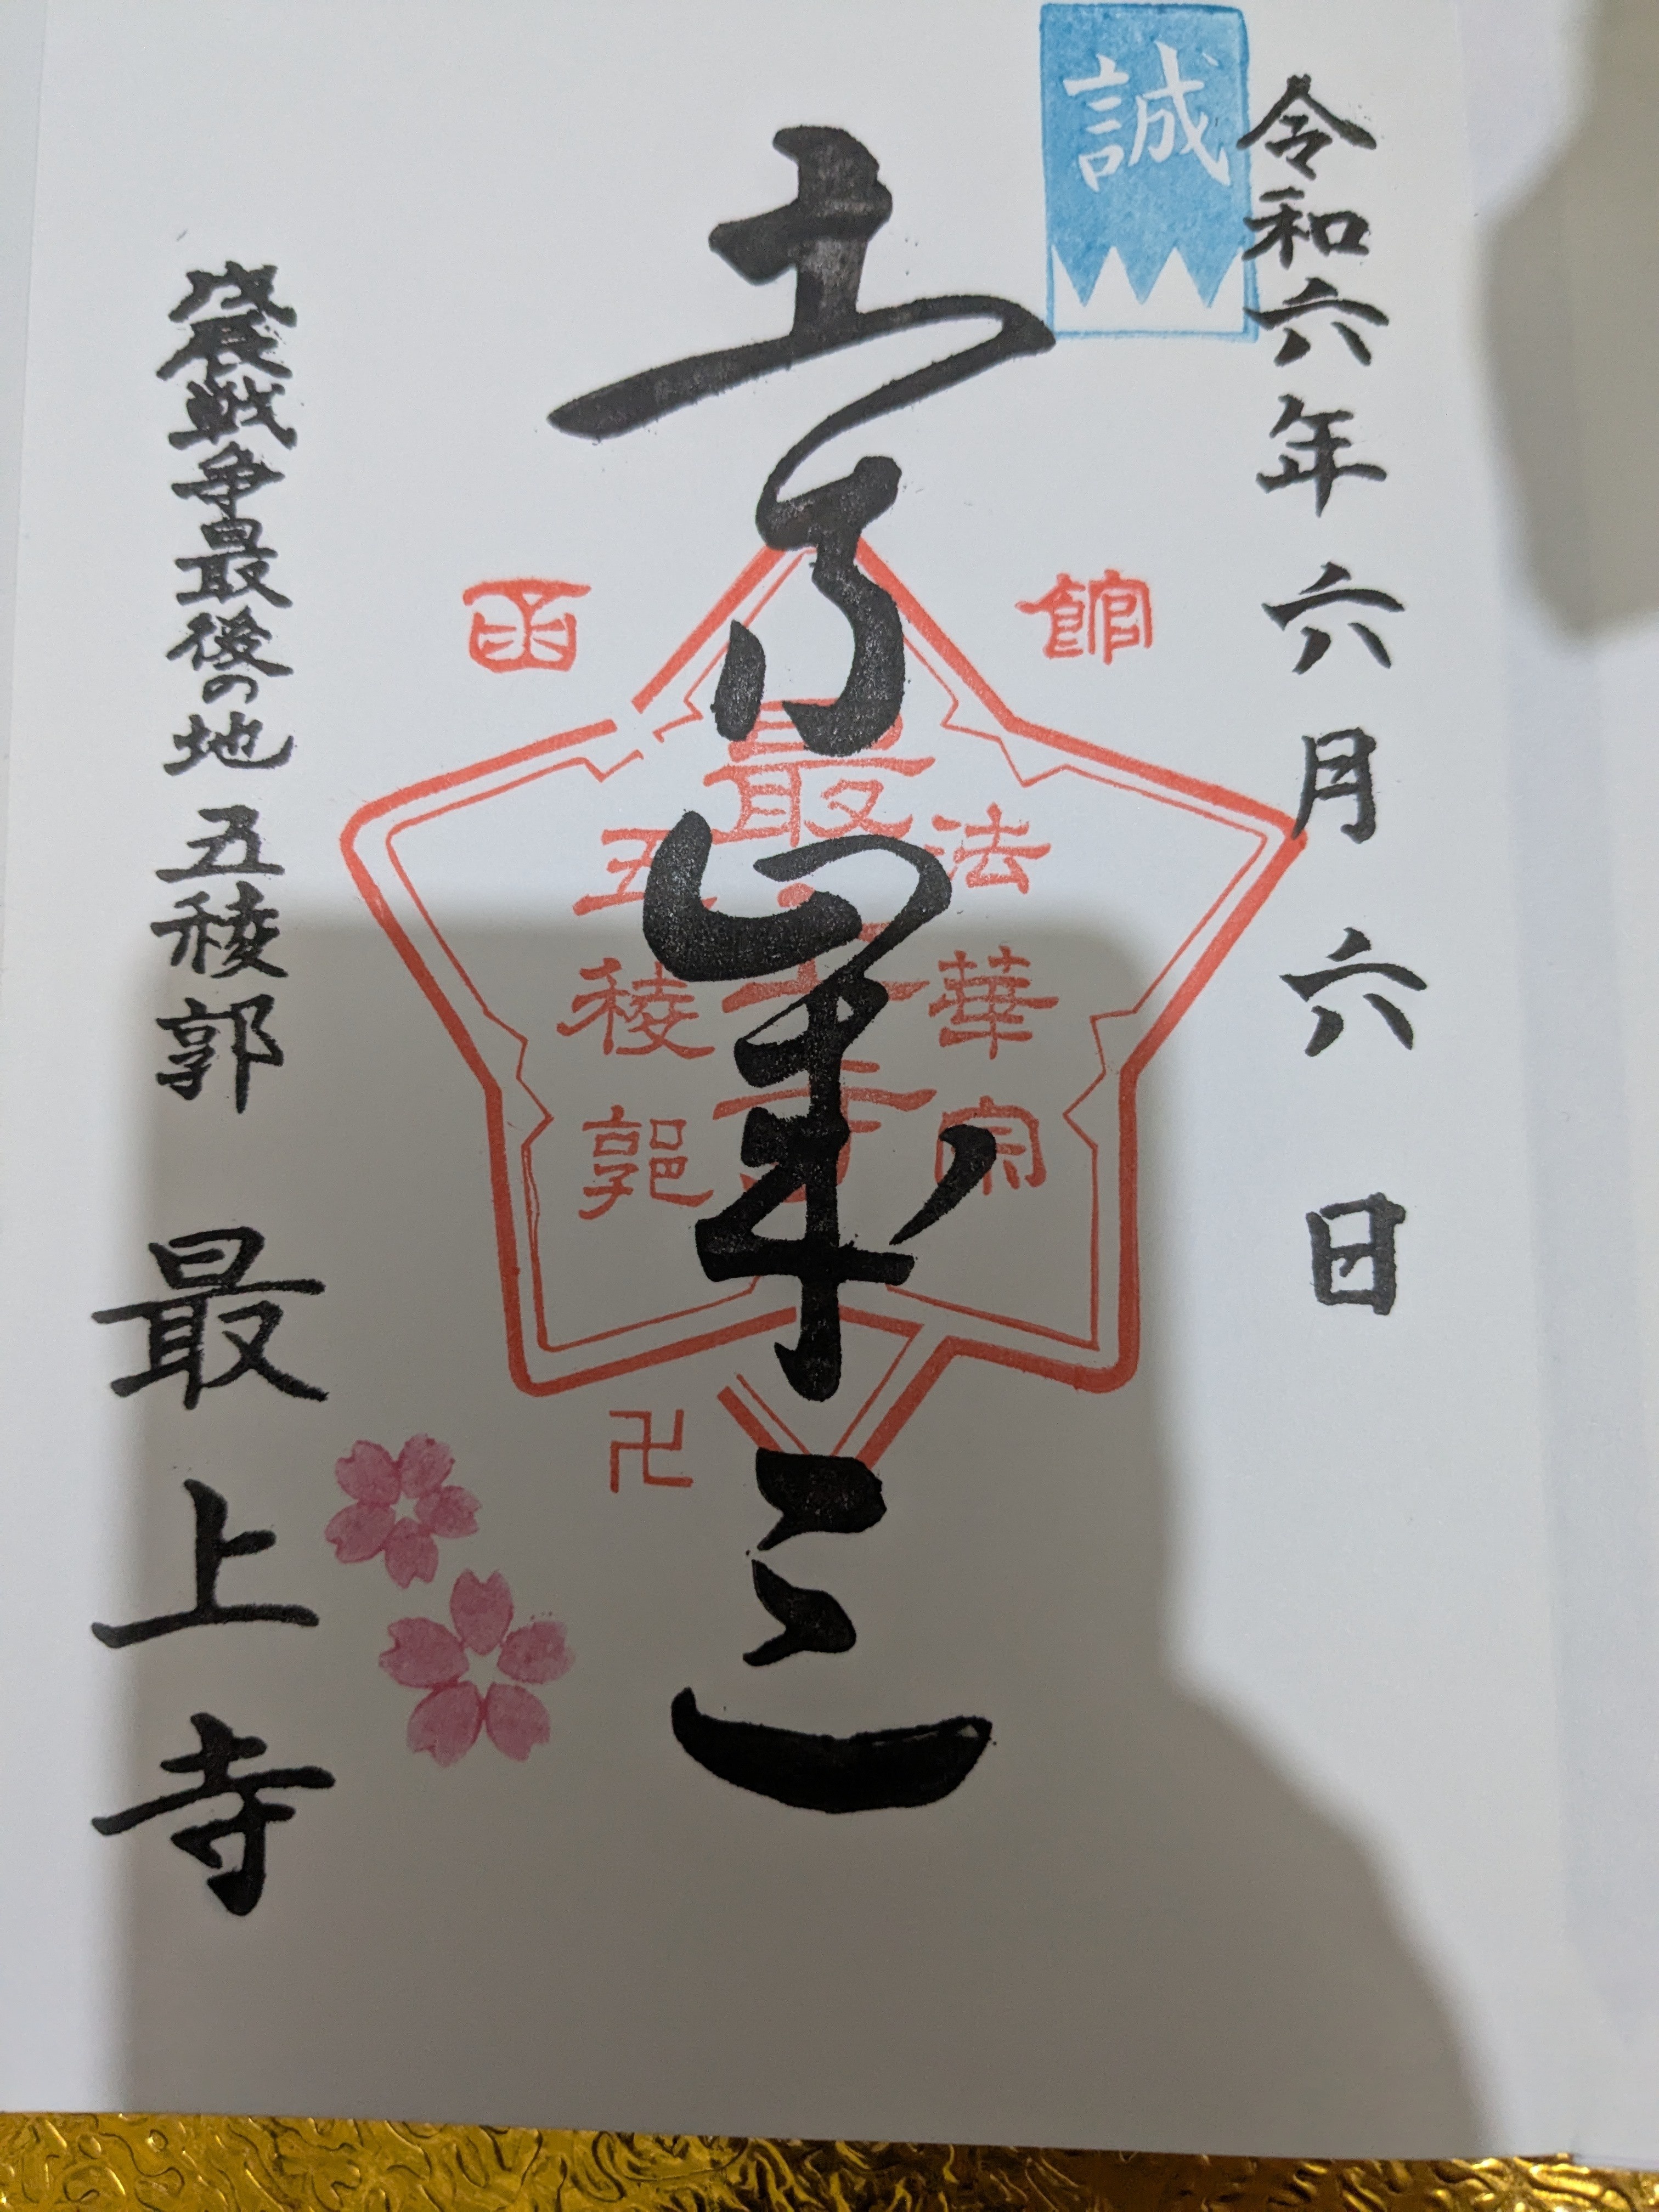 令和六年六月六日
誠
土方歳三
函館
最上寺
法華宗
五稜郭
卍
戊辰戦争最後の地 五稜郭 最上寺